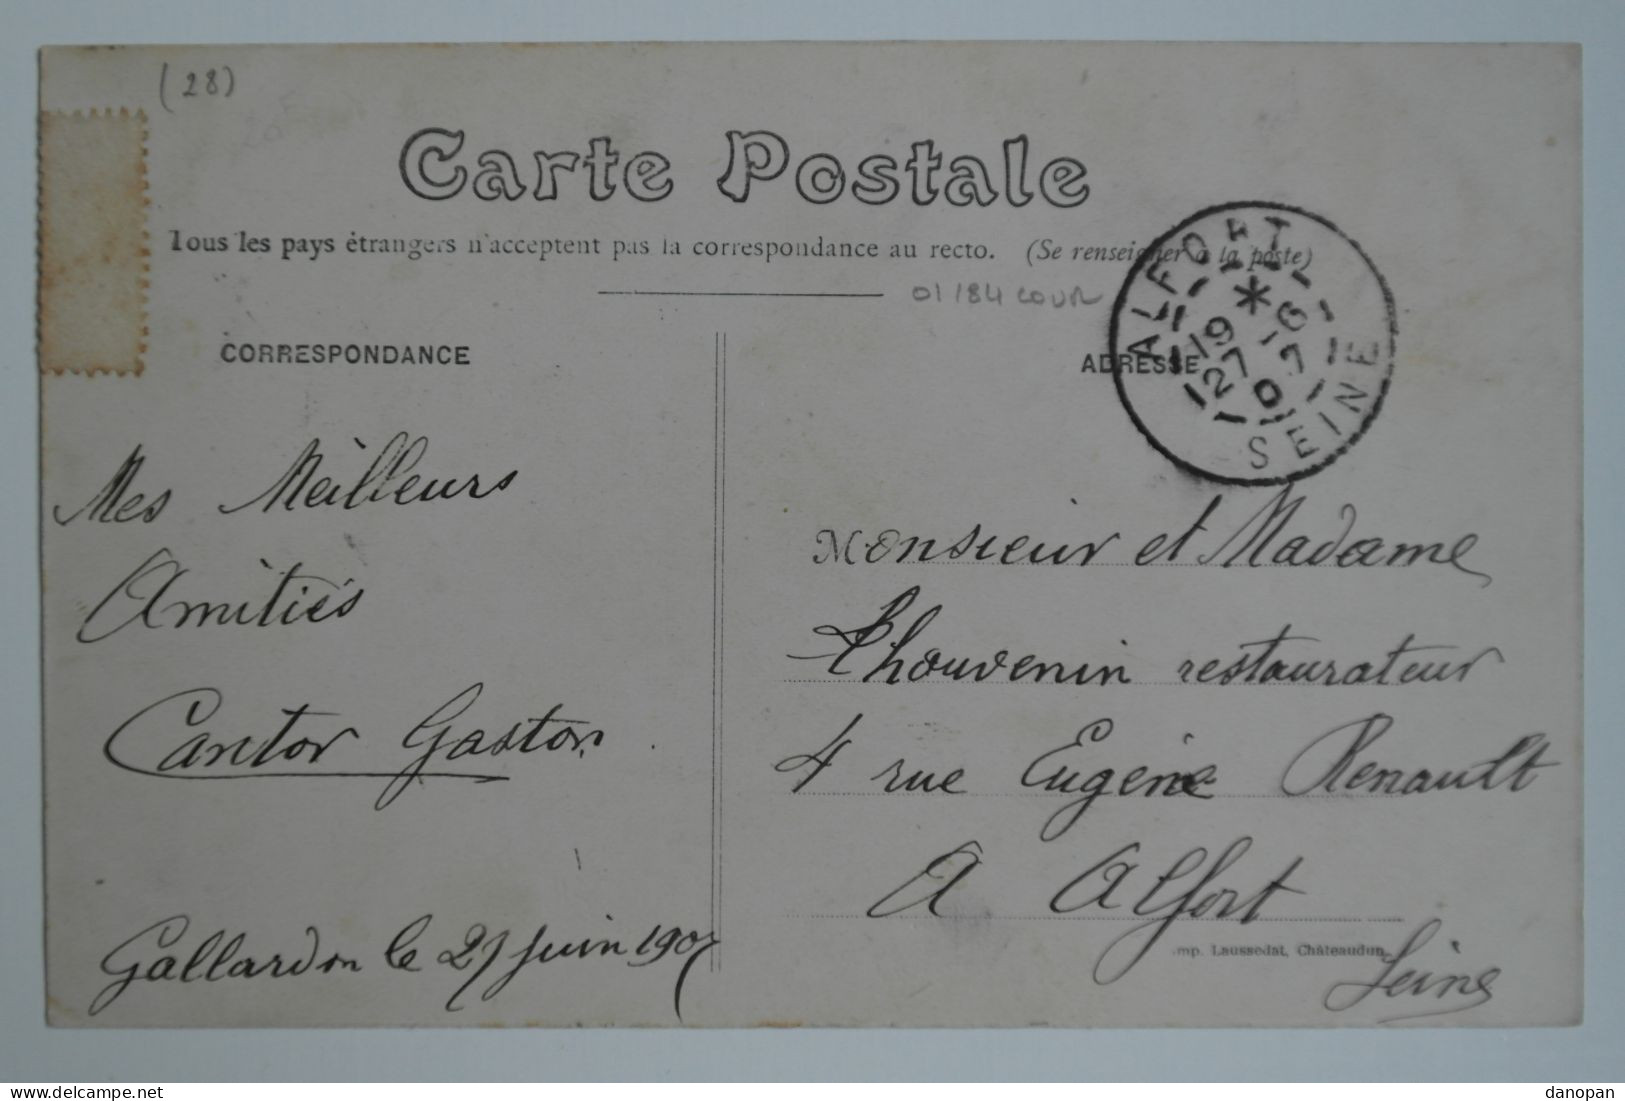 (28)
Carte Postale
Tous les pays étrangers n'acceptent pas la correspondance au recto. (Se renseigner à la poste)
01184 COUR
CORRESPONDANCE
ADRESSE
ALFORT
19
27 -6
07
SEINE
Mes Meilleurs
Amitiés
Cantor Gaston
Gallardon le 27 juin 1907
Monsieur et Madame
Thouvenin restaurateur
4 rue Eugène Renault
A Alfort
Seine
Imp. Laussedat, Châteaudun
delcampe.net
danopan